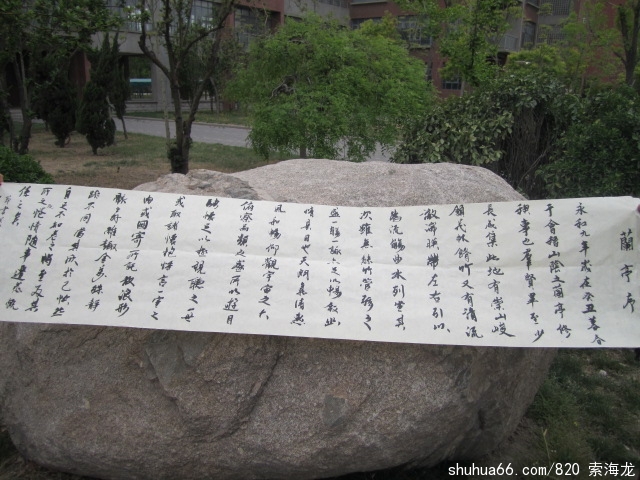 蘭亭序
永和九年歲在癸丑暮春
于會稽山陰之蘭亭修
禊事也羣賢畢至少
長咸集此地有崇山峻
領茂林脩竹又有清流
激湍暎帶左右引以
為流觴曲水列坐其
次雖無絲竹管弦之
盛一觴一詠足以暢叙
情是日也天朗氣清惠
風和暢仰觀宇宙之大
俯察品類之盛所以遊目
騁懷足以極視聽之
或取諸懷抱悟言一室之
內或因寄所託放浪形
骸雖趣舍萬殊靜
躁不同當其欣於己怏然
自足不知老之將至及其
所之惓情隨事遷感慨
係之矣
shuhua66.com/820 索海龙